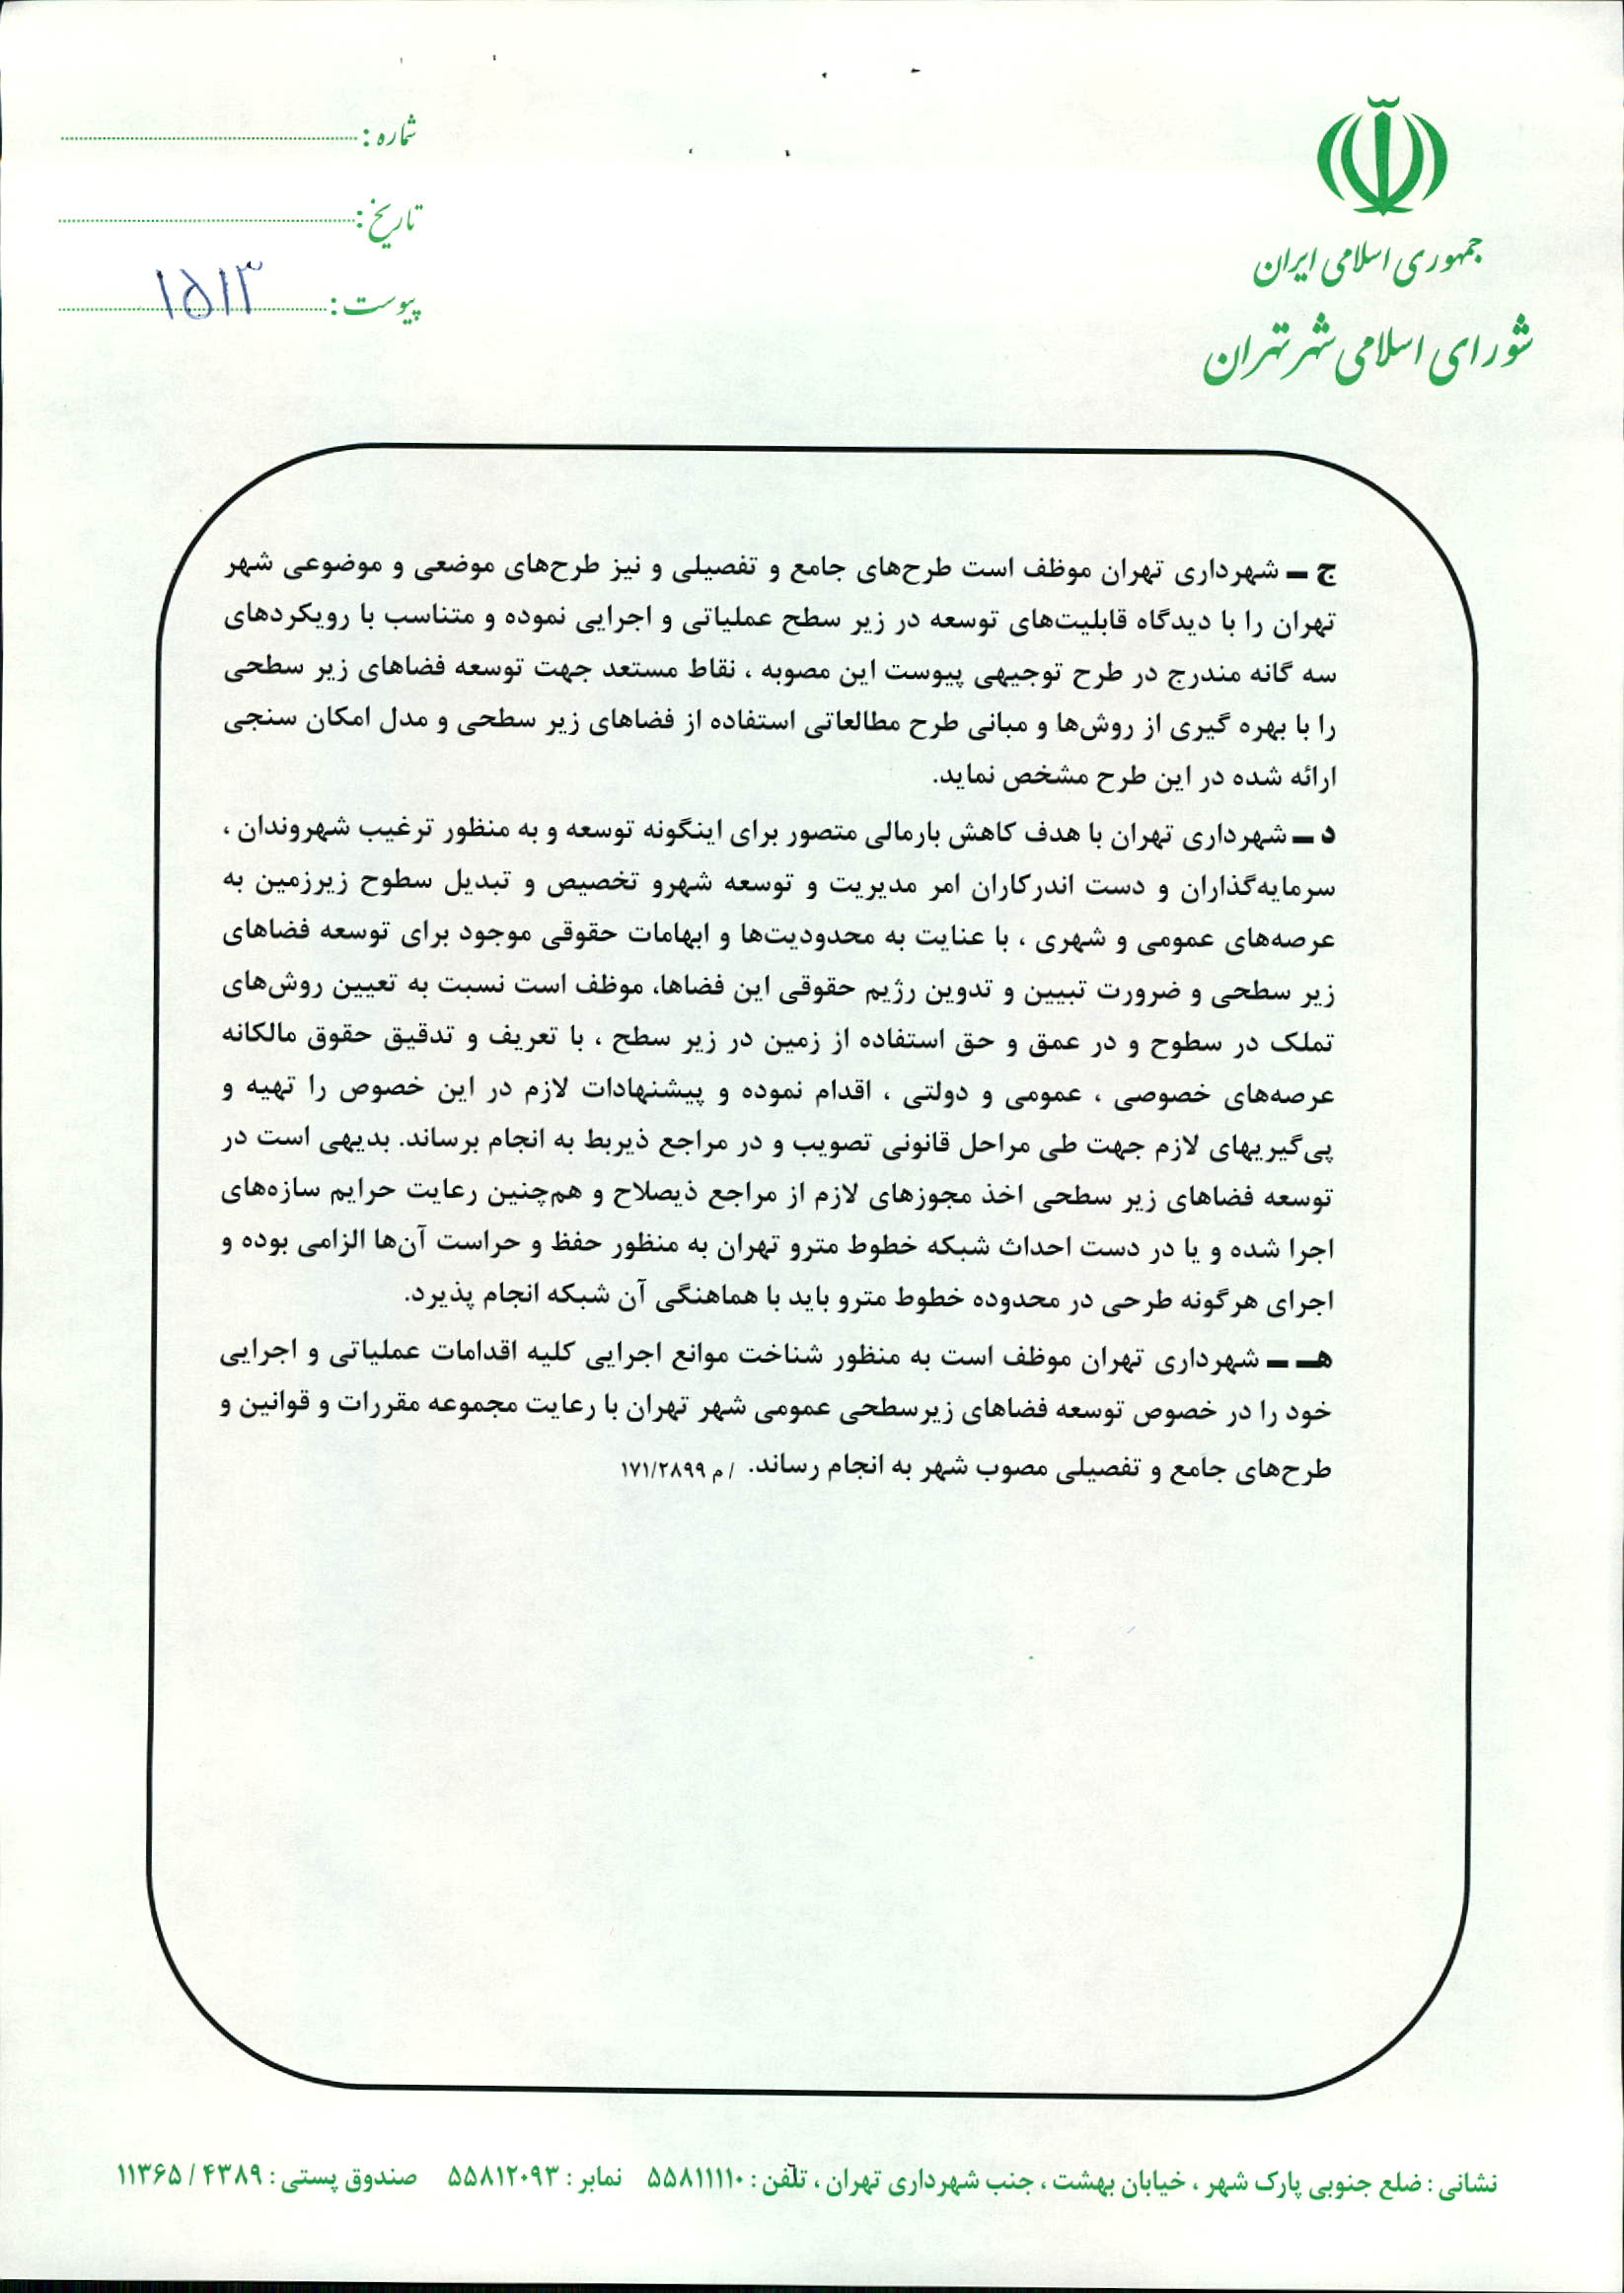 جمهوری اسلامی ایران
شورای اسلامی شهر تهران
شماره :
تاریخ :
پیوست : ۱۵۱۳
ج – شهرداری تهران موظف است طرح‌های جامع و تفصیلی و نیز طرح‌های موضعی و موضوعی شهر
تهران را با دیدگاه قابلیت‌های توسعه در زیر سطح عملیاتی و اجرایی نموده و متناسب با رویکردهای
سه گانه مندرج در طرح توجیهی پیوست این مصوبه ، نقاط مستعد جهت توسعه فضاهای زیر سطحی
را با بهره گیری از روش‌ها و مبانی طرح مطالعاتی استفاده از فضاهای زیر سطحی و مدل امکان سنجی
ارائه شده در این طرح مشخص نماید.
د – شهرداری تهران با هدف کاهش بارمالی متصور برای اینگونه توسعه و به منظور ترغیب شهروندان ،
سرمایه‌گذاران و دست اندرکاران امر مدیریت و توسعه شهرو تخصیص و تبدیل سطوح زیرزمین به
عرصه‌های عمومی و شهری ، با عنایت به محدودیت‌ها و ابهامات حقوقی موجود برای توسعه فضاهای
زیر سطحی و ضرورت تبیین و تدوین رژیم حقوقی این فضاها، موظف است نسبت به تعیین روش‌های
تملک در سطوح و در عمق و حق استفاده از زمین در زیر سطح ، با تعریف و تدقیق حقوق مالکانه
عرصه‌های خصوصی ، عمومی و دولتی ، اقدام نموده و پیشنهادات لازم در این خصوص را تهیه و
پی‌گیریهای لازم جهت طی مراحل قانونی تصویب و در مراجع ذیربط به انجام برساند. بدیهی است در
توسعه فضاهای زیر سطحی اخذ مجوزهای لازم از مراجع ذیصلاح و هم‌چنین رعایت حرایم سازه‌های
اجرا شده و یا در دست احداث شبکه خطوط مترو تهران به منظور حفظ و حراست آن‌ها الزامی بوده و
اجرای هرگونه طرحی در محدوده خطوط مترو باید با هماهنگی آن شبکه انجام پذیرد.
هـ – شهرداری تهران موظف است به منظور شناخت موانع اجرایی کلیه اقدامات عملیاتی و اجرایی
خود را در خصوص توسعه فضاهای زیرسطحی عمومی شهر تهران با رعایت مجموعه مقررات و قوانین و
طرح‌های جامع و تفصیلی مصوب شهر به انجام رساند. / م ۱۷۱/۲۸۹۹
نشانی : ضلع جنوبی پارک شهر ، خیابان بهشت ، جنب شهرداری تهران ، تلفن : ۵۵۸۱۱۱۱۰ نمابر : ۵۵۸۱۲۰۹۳ صندوق پستی : ۴۳۸۹ / ۱۱۳۶۵